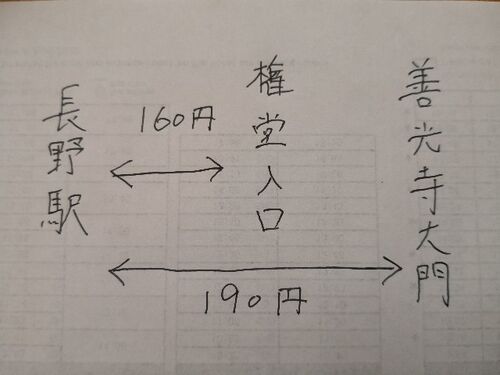 長野駅
160円
権堂入口
善光寺大門
190円